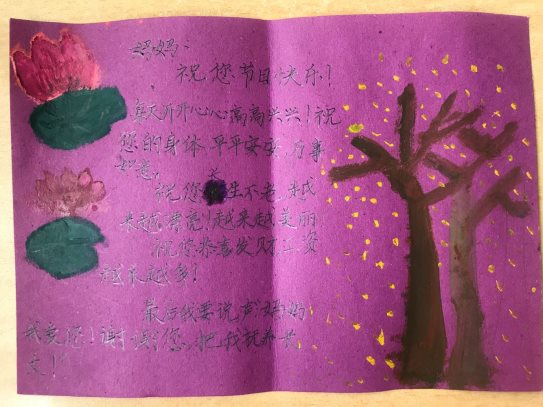 妈妈:
祝您节日快乐!
每天开开心心高高兴兴!祝
您的身体平平安安,万事
如意。
祝您长生不老,越
来越漂亮!越来越美丽
祝你恭喜发财工资
越来越多!
最后我要说声"妈妈
我爱您!谢谢您,把我抚养长
大!"